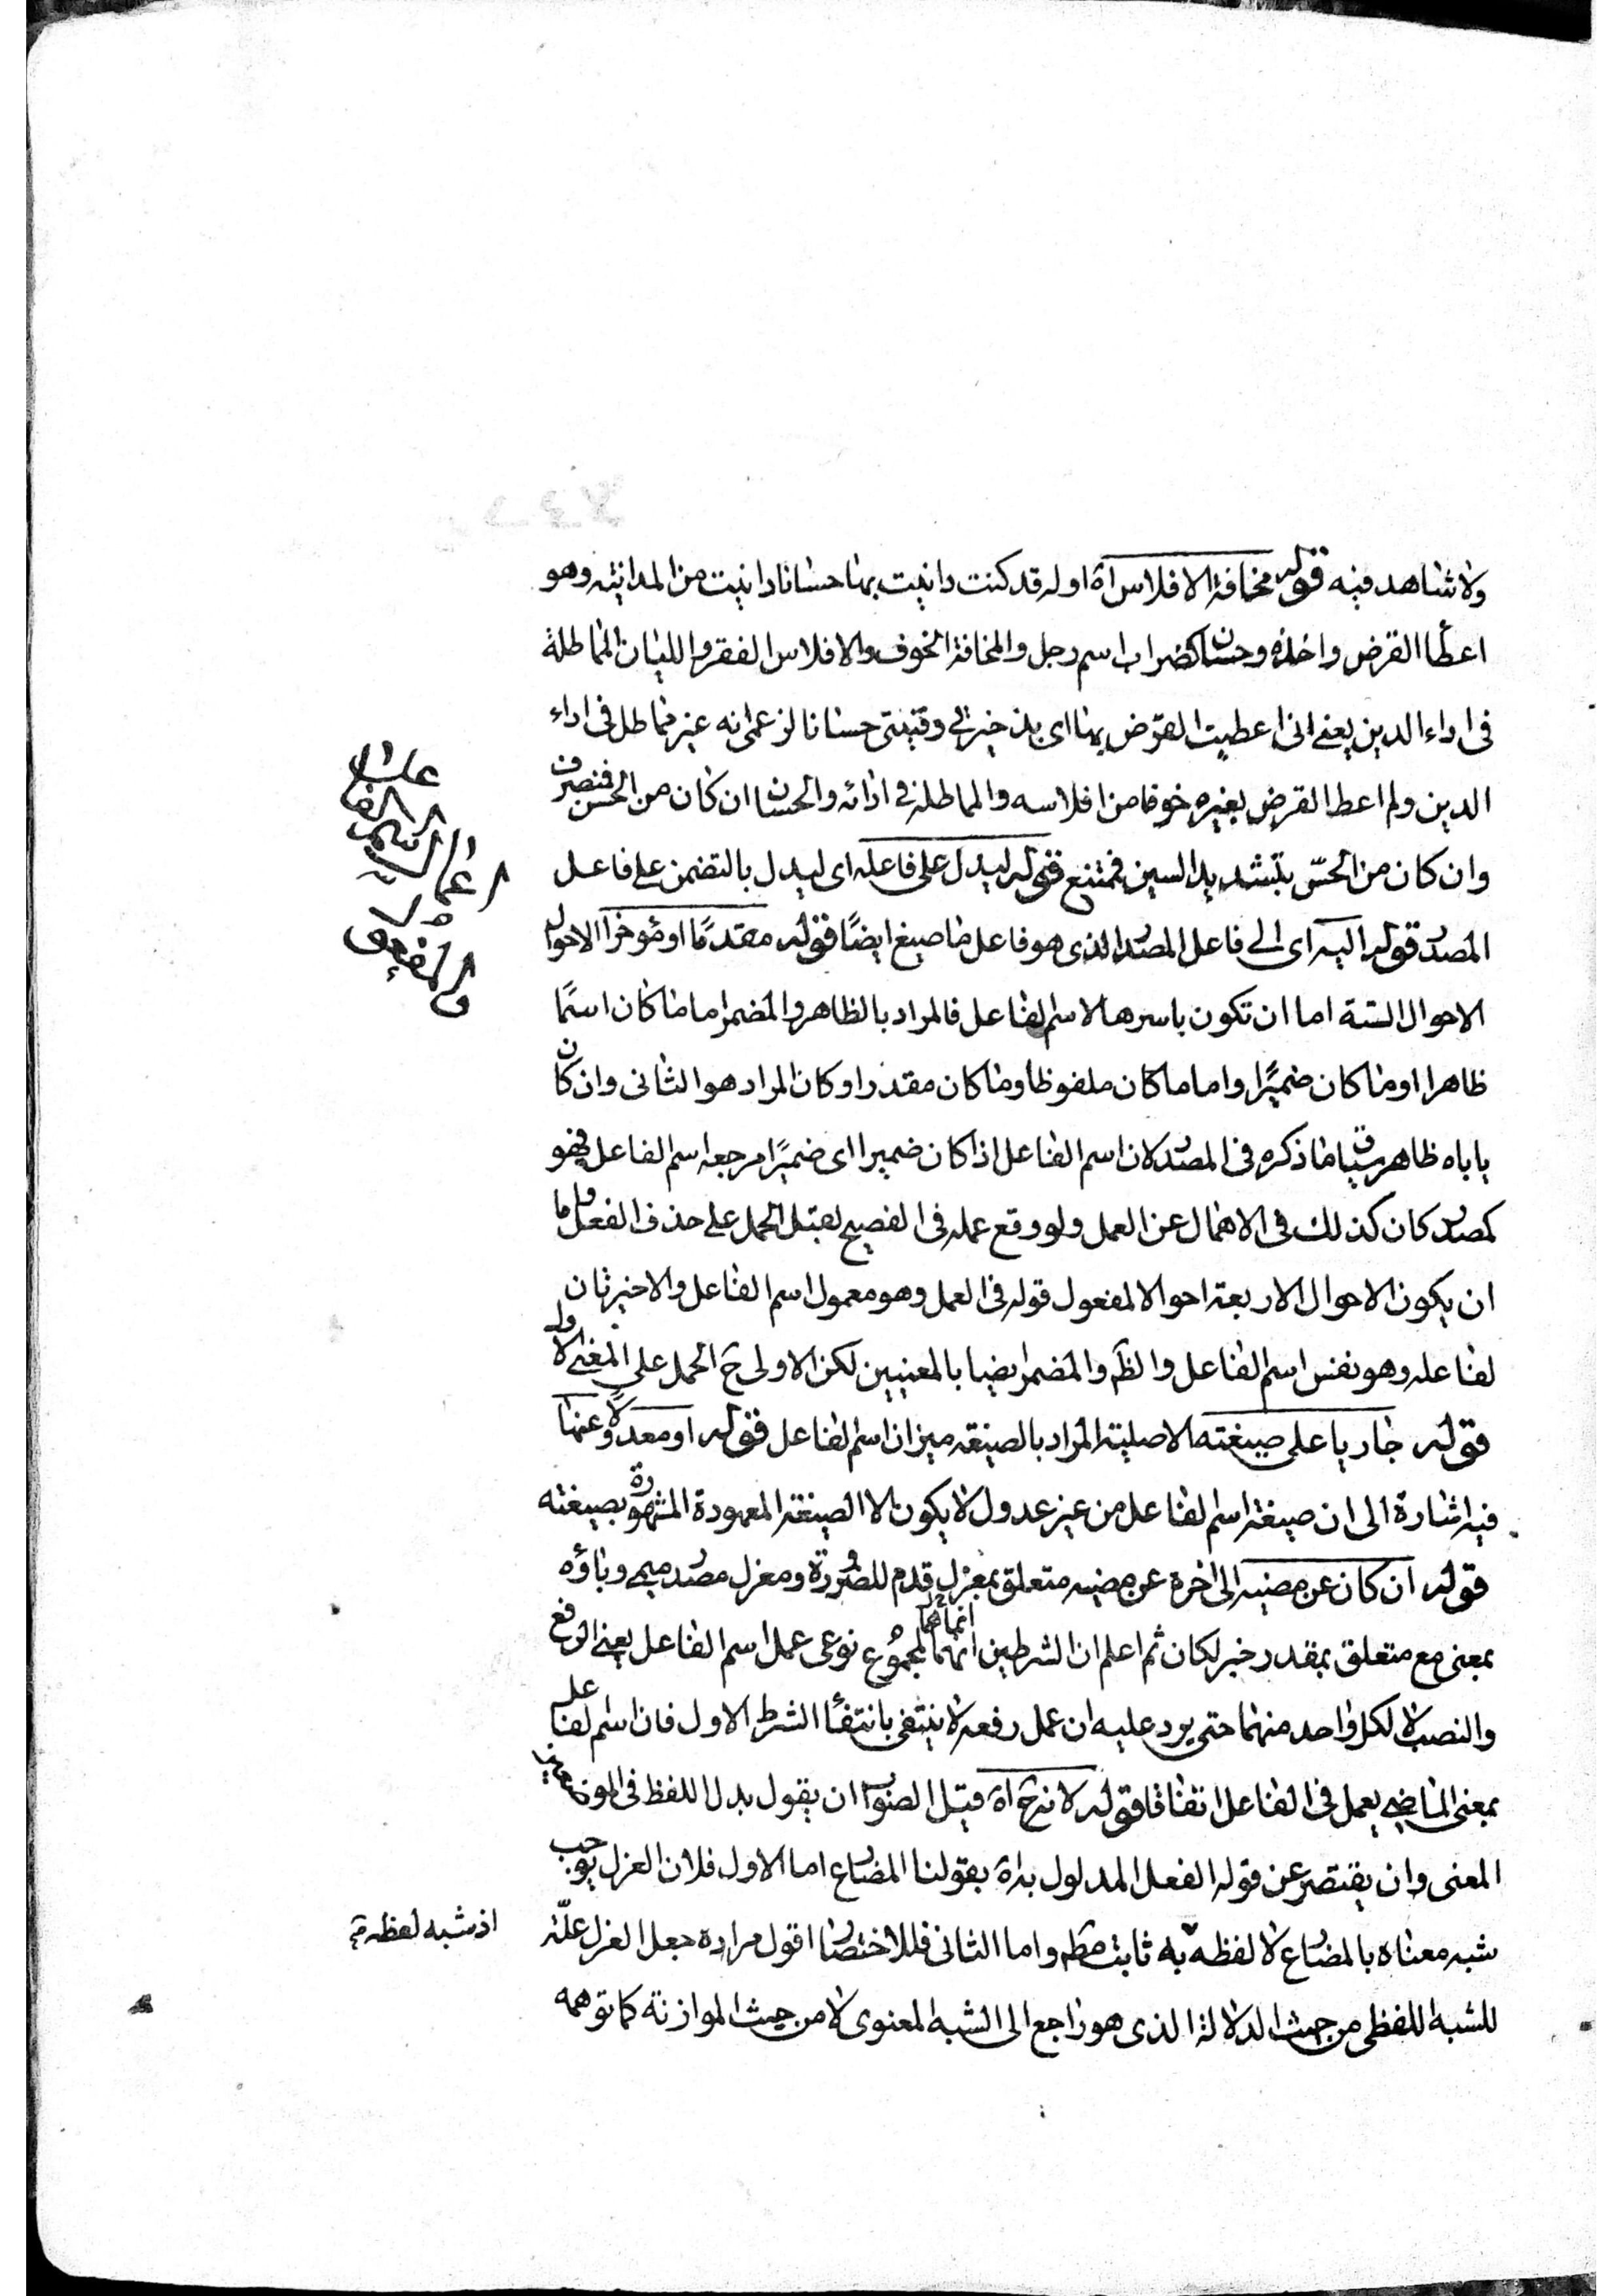 ولا شاهد فيه قوله مخافة الافلاس اه اوله قد كنت داينت بها حسانا داينت من المداينه وهو
اعطأ القرض واخذه وحسان كضراب اسم رجل والمخافة الخوف والافلاس الفقر والليان المماطلة
فى اداء الدين يعنے انى اعطيت القرض بها اى بذخيرتى وقينتى حسانا لزعمى انه غير مماطل فى اداء
الدين ولم اعط القرض بغيره خوفا من افلاسه والمماطلة فى ادائه والحسان ان كان من الحسن فمنصرف
وان كان من الحسّ بتشديد السين فممتنع قوله ليدل على فاعله اى ليدل بالتضمن على فاعل
المصدر قوله اليه اى الى فاعل المصدر الذى هو فاعل ما صيغ ايضًا قوله مقدمًا او مؤخرا الاحوال
الاحوال الستة اما ان تكون باسرها لاسم الفاعل فالمراد بالظاهر والمضمر اما ما كان اسمًا
ظاهرا او ما كان ضميرًا واما ما كان ملفوظا وما كان مقدرا وكان المراد هو الثانى وان كان
ياباه ظاهر سياق ما ذكره فى المصدر لان اسم الفاعل اذا كان ضميرا اى ضميرًا مرجعه اسم الفاعل فهو
كمصدر كان كذلك فى الاهمال عن العمل ولو وقع عمله فى الفصيح لقبل الحمل على حذف الفعل واما
ان يكون الاحوال الاربعة احوالا لمفعول قوله فى العمل وهو معمول اسم الفاعل والاخيرتان
لفاعله وهو نفس اسم الفاعل والظ والمضمر ايضا بالمعنيين لكن الاولى ح الحمل على المعنى الاول
قوله جاريا على صيغته الاصلية المراد بالصيغة ميزان اسم الفاعل قوله او معدولا عنها
فيه اشارة الى ان صيغة اسم الفاعل من غير عدول لا يكون الا الصيغة المعهودة المشهورة بصيغته
قوله ان كان عن مضيه الى اخره عن مضيه متعلق بمعزل قدم للضرورة ومعزل مصدر ميمى وباؤه
بمعنى مع متعلق بمقدر خبر لكان ثم اعلم ان الشرطين انهما انما هما لمجموع نوعى عمل اسم الفاعل يعنى الرفع
والنصب لا لكل واحد منهما حتى يرد عليه ان عمل رفعه لا ينتفى بانتفأ الشرط الاول فان اسم الفاعل
بمعنى الماضى يعمل فى الفاعل اتفاقا قوله لانه ح اه قيل الصواب ان يقول بدل اللفظ فى الموضعين
المعنى وان يقتصر عن قوله الفعل المدلول به اه بقولنا المضارع اما الاول فلان العزل يوجب
شبه معناه بالمضارع لا لفظه به ثابت مط واما الثانى فللاختصار اقول مراده جعل العزل علّة
للشبه اللفظى من حيث الدلالة الذى هو راجع الى الشبه المعنوى لا من حيث الموازنة كما توهمه
اعمال اسم الفاعل
والمفعول
اذ شبه لفظه